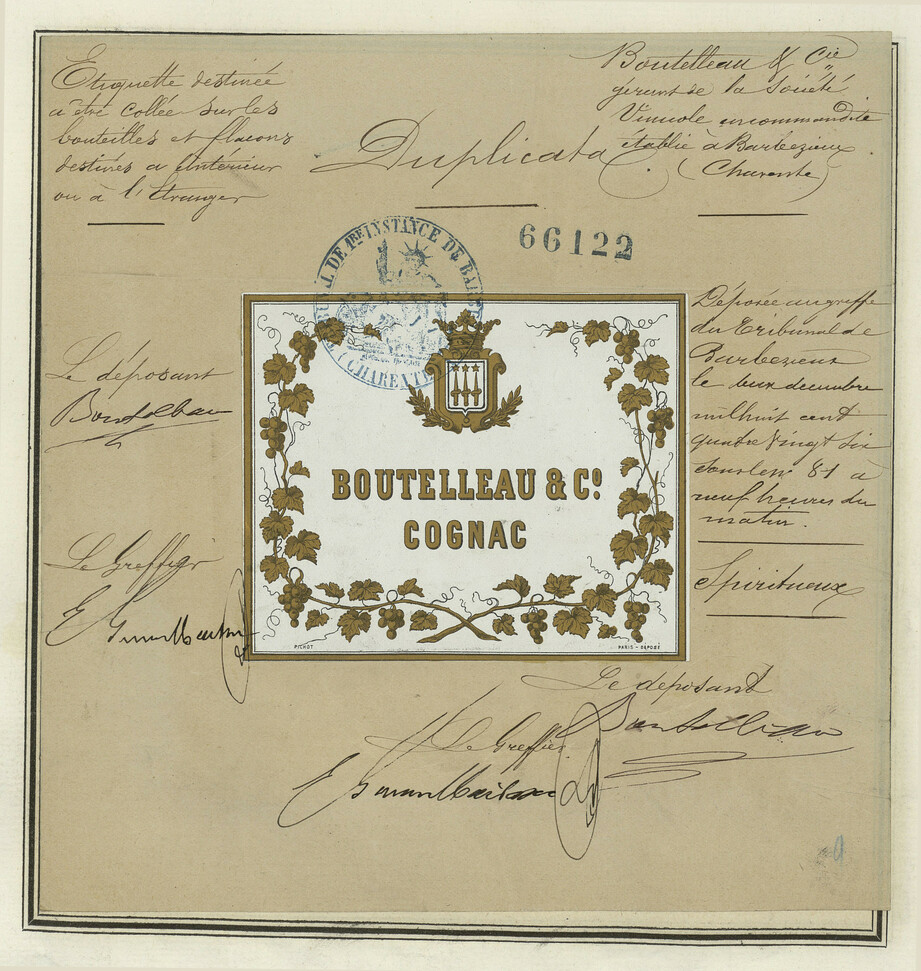 Etiquette destinée
a être collée sur les
bouteilles et flacons
destinés a l'interieur
ou à l'étranger
Duplicata
Boutelleau & Cie
gérant de la Société
Vinicole en commandite
établie à Barbezieux
(Charente)
66122
DE 1RE INSTANCE DE BAR
CHARENTE
Le déposant
Boutelleau
Le Greffier
BOUTELLEAU & Co
COGNAC
PICHOT
PARIS - DEPOSÉ
Déposée au greffe
du Tribunal de
Barbezieux
le deux decembre
mil huit cent
quatre vingt six
sous le no 81 à
neuf heures du
matin.
Spiritueux
Le déposant
Boutelleau
Le Greffier